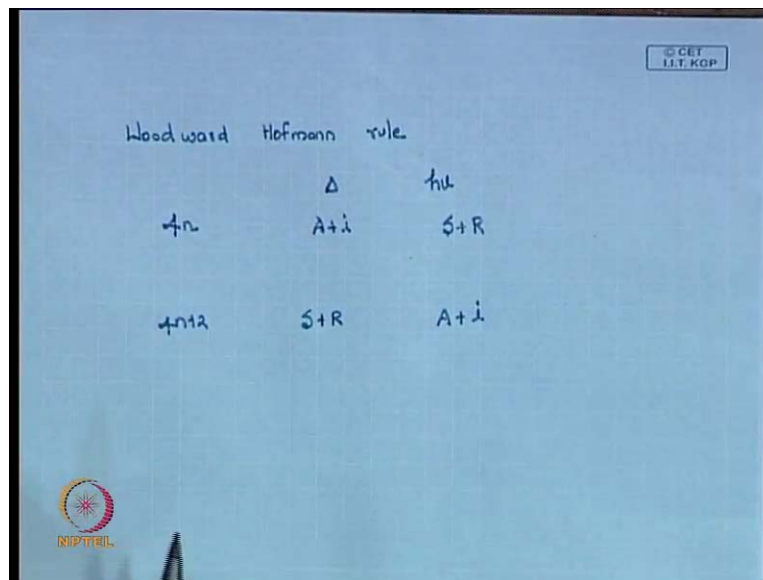 © CET
I.I.T. KGP
Woodward Hofmann rule
Δ hν
4n A+i S+R
4n+2 S+R A+i
NPTEL